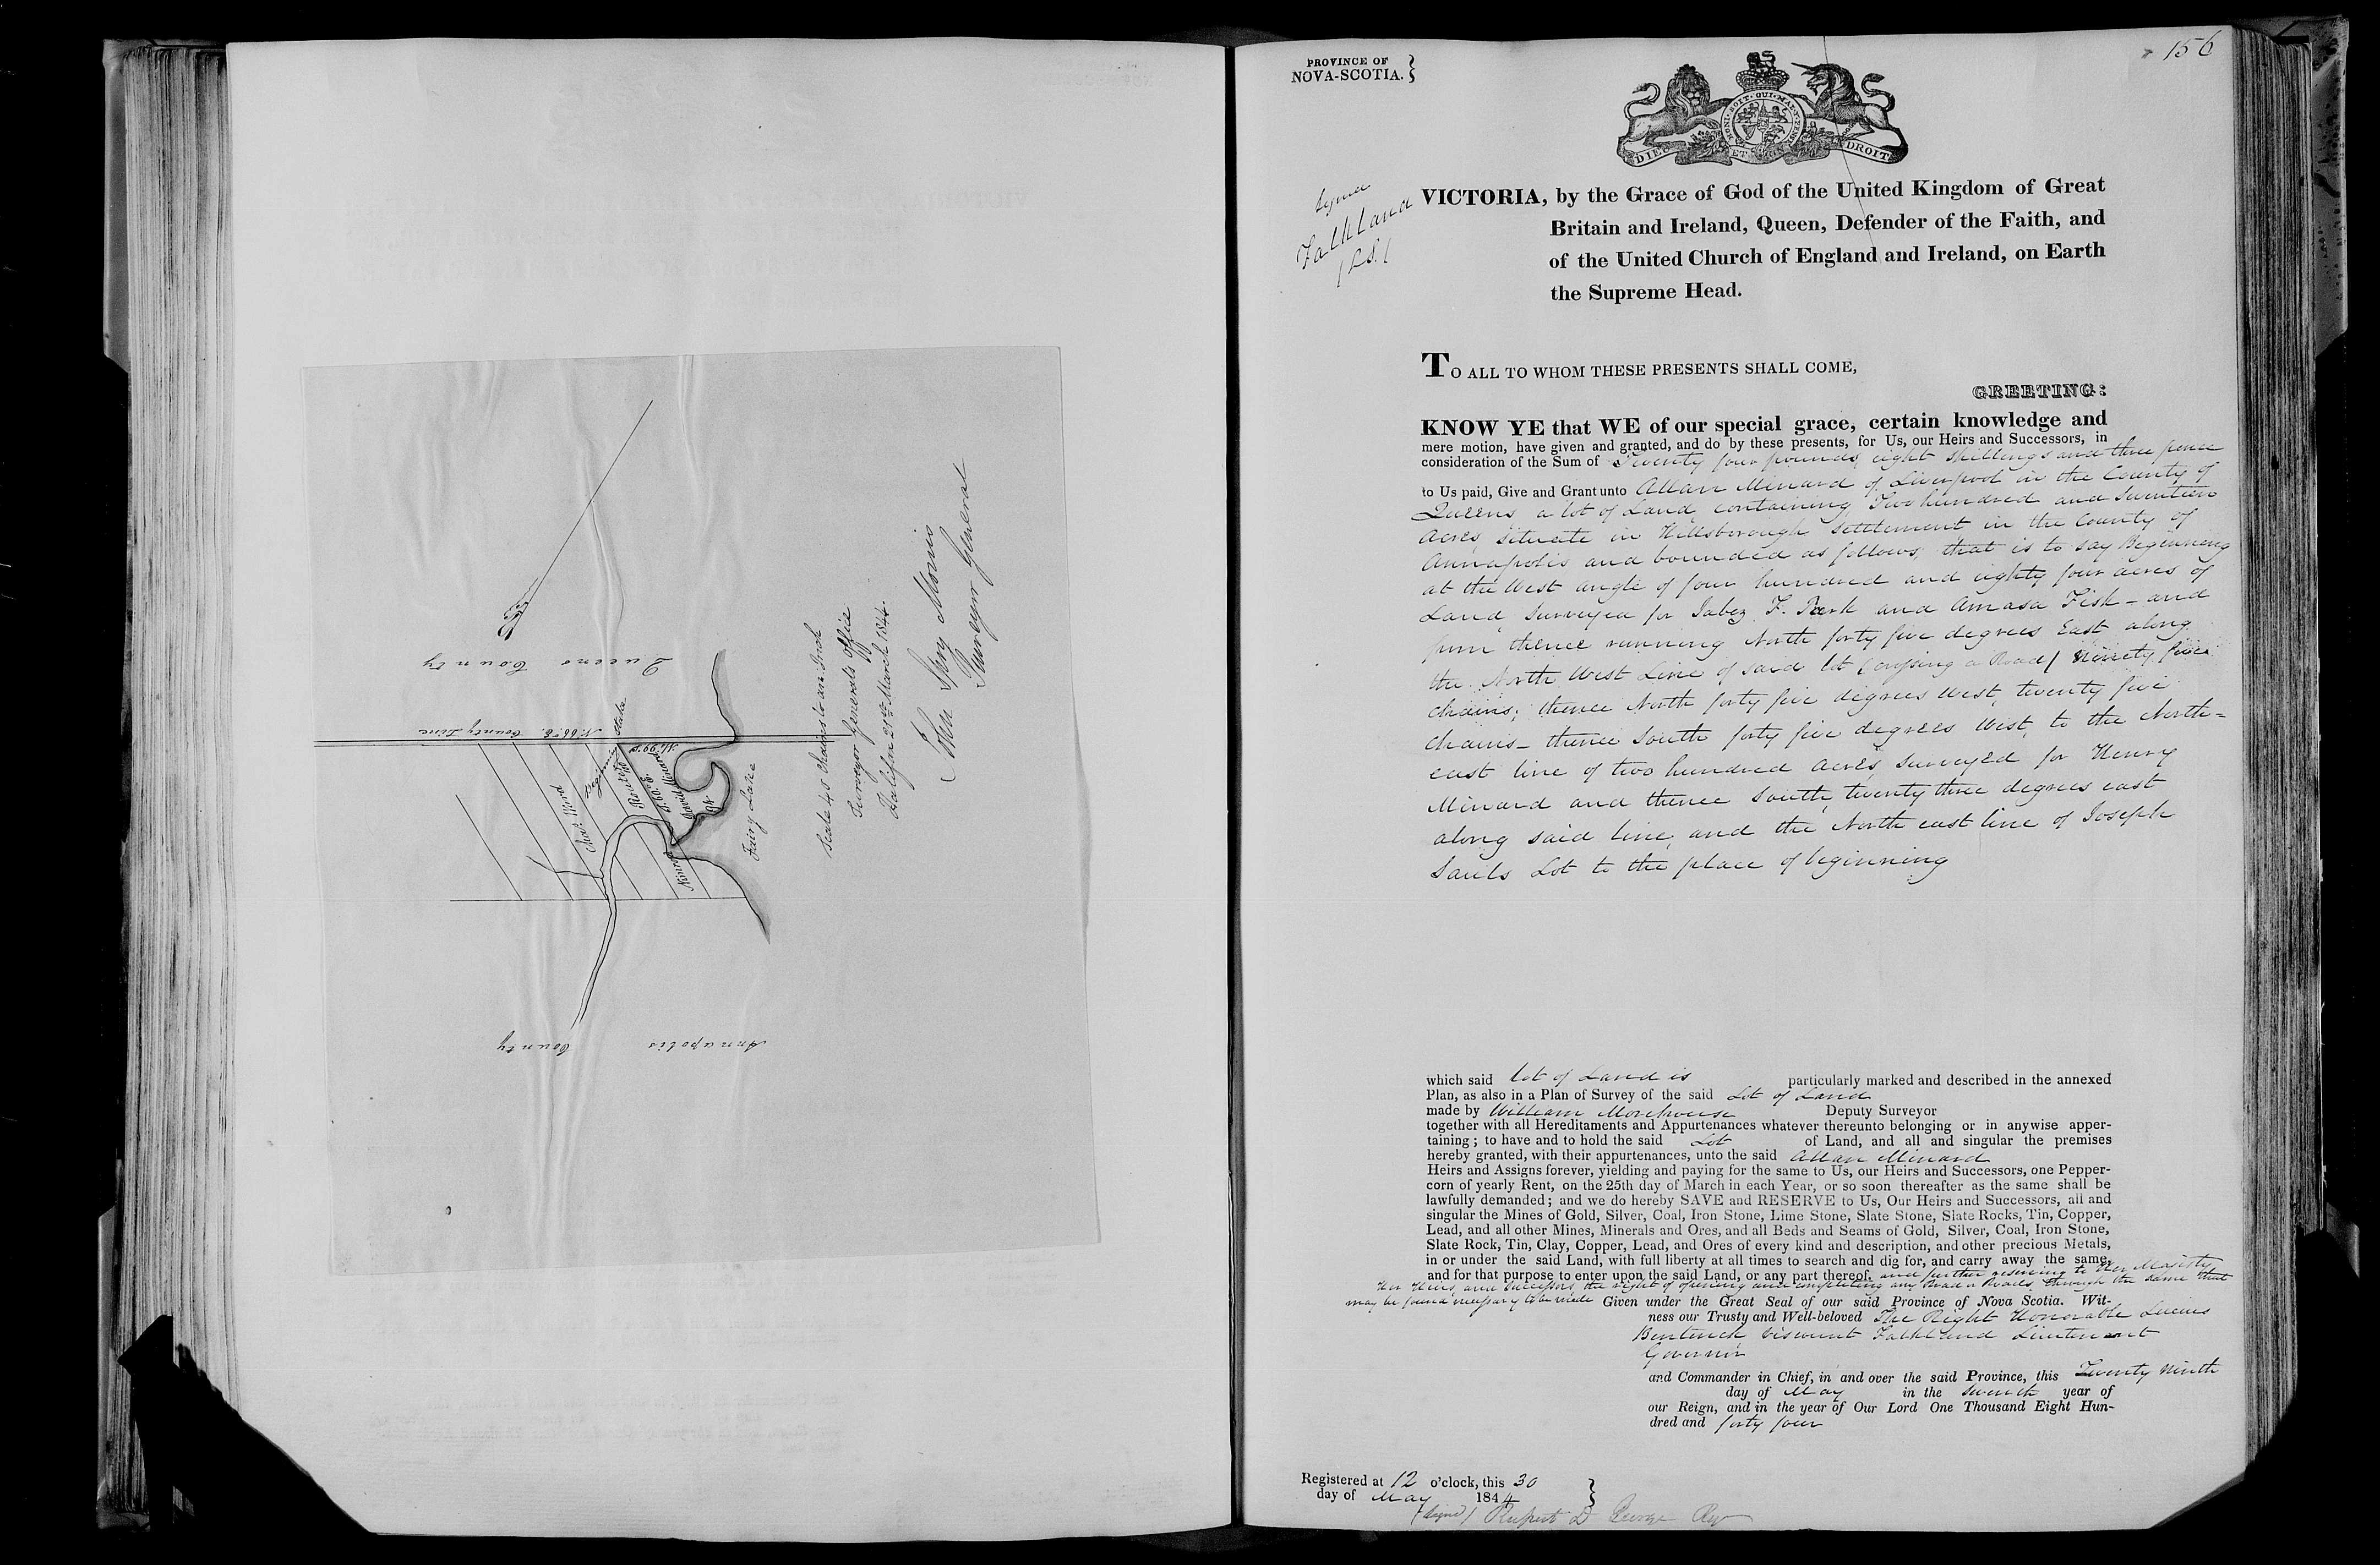 Queens County
N. 66° E. County Line
Beginning Stake
Chas. Ford
David Minard
94
Fairy Lake
Annapolis County
Scale 40 Chains to an Inch
Surveyor Generals Office
Halifax 21st March 1844.
John Spry Morris
Surveyor General
156
PROVINCE OF
NOVA-SCOTIA.
DIEU ET MON DROIT
HONI SOIT QUI MAL Y PENSE
Signed
Falkland
(L.S.)
VICTORIA, by the Grace of God of the United Kingdom of Great
Britain and Ireland, Queen, Defender of the Faith, and
of the United Church of England and Ireland, on Earth
the Supreme Head.
TO ALL TO WHOM THESE PRESENTS SHALL COME,
GREETING:
KNOW YE that WE of our special grace, certain knowledge and
mere motion, have given and granted, and do by these presents, for Us, our Heirs and Successors, in
consideration of the Sum of Twenty four pounds, eight shillings and three pence
to Us paid, Give and Grant unto Allan Minard of Liverpool in the County of
Queens, a lot of Land containing Two hundred and seventeen
Acres, situate in Hillsborough Settlement in the County of
Annapolis and bounded as follows, that is to say Beginning
at the West angle of four hundred and eighty four acres of
Land Surveyed for Jabez F. and Amasa Fisk - and
from thence running North forty five degrees East along
the North West Line of said lot (crossing a Road) Ninety five
chains; thence North forty five degrees West, twenty five
chains - thence South forty five degrees West, to the North=
east line of two hundred acres surveyed for Henry
Minard and thence South, twenty three degrees east
along said line, and the North east line of Joseph
Sauls Lot to the place of beginning
which said lot of Land is particularly marked and described in the annexed
Plan, as also in a Plan of Survey of the said Lot of Land
made by William Morehouse Deputy Surveyor
together with all Hereditaments and Appurtenances whatever thereunto belonging or in anywise apper-
taining; to have and to hold the said Lot of Land, and all and singular the premises
hereby granted, with their appurtenances, unto the said Allan Minard
Heirs and Assigns forever, yielding and paying for the same to Us, our Heirs and Successors, one Pepper-
corn of yearly Rent, on the 25th day of March in each Year, or so soon thereafter as the same shall be
lawfully demanded; and we do hereby SAVE and RESERVE to Us, Our Heirs and Successors, all and
singular the Mines of Gold, Silver, Coal, Iron Stone, Lime Stone, Slate Stone, Slate Rocks, Tin, Copper,
Lead, and all other Mines, Minerals and Ores, and all Beds and Seams of Gold, Silver, Coal, Iron Stone,
Slate Rock, Tin, Clay, Copper, Lead, and Ores of every kind and description, and other precious Metals,
in or under the said Land, with full liberty at all times to search and dig for, and carry away the same,
and for that purpose to enter upon the said Land, or any part thereof. and further reserving to Her Majesty
Her Heirs and Successors, the right of opening and completing any Road or Roads, through the same that
may be found necessary to be made Given under the Great Seal of our said Province of Nova Scotia. Wit-
ness our Trusty and Well-beloved The Right Honorable Lucius
Bentinck Viscount Falkland Lieutenant
Governor
and Commander in Chief, in and over the said Province, this Twenty Ninth
day of May in the seventh year of
our Reign, and in the year of Our Lord One Thousand Eight Hun-
dred and forty four
Registered at 12 o'clock, this 30
day of May 1844
(Signed) Rupert D George Reg